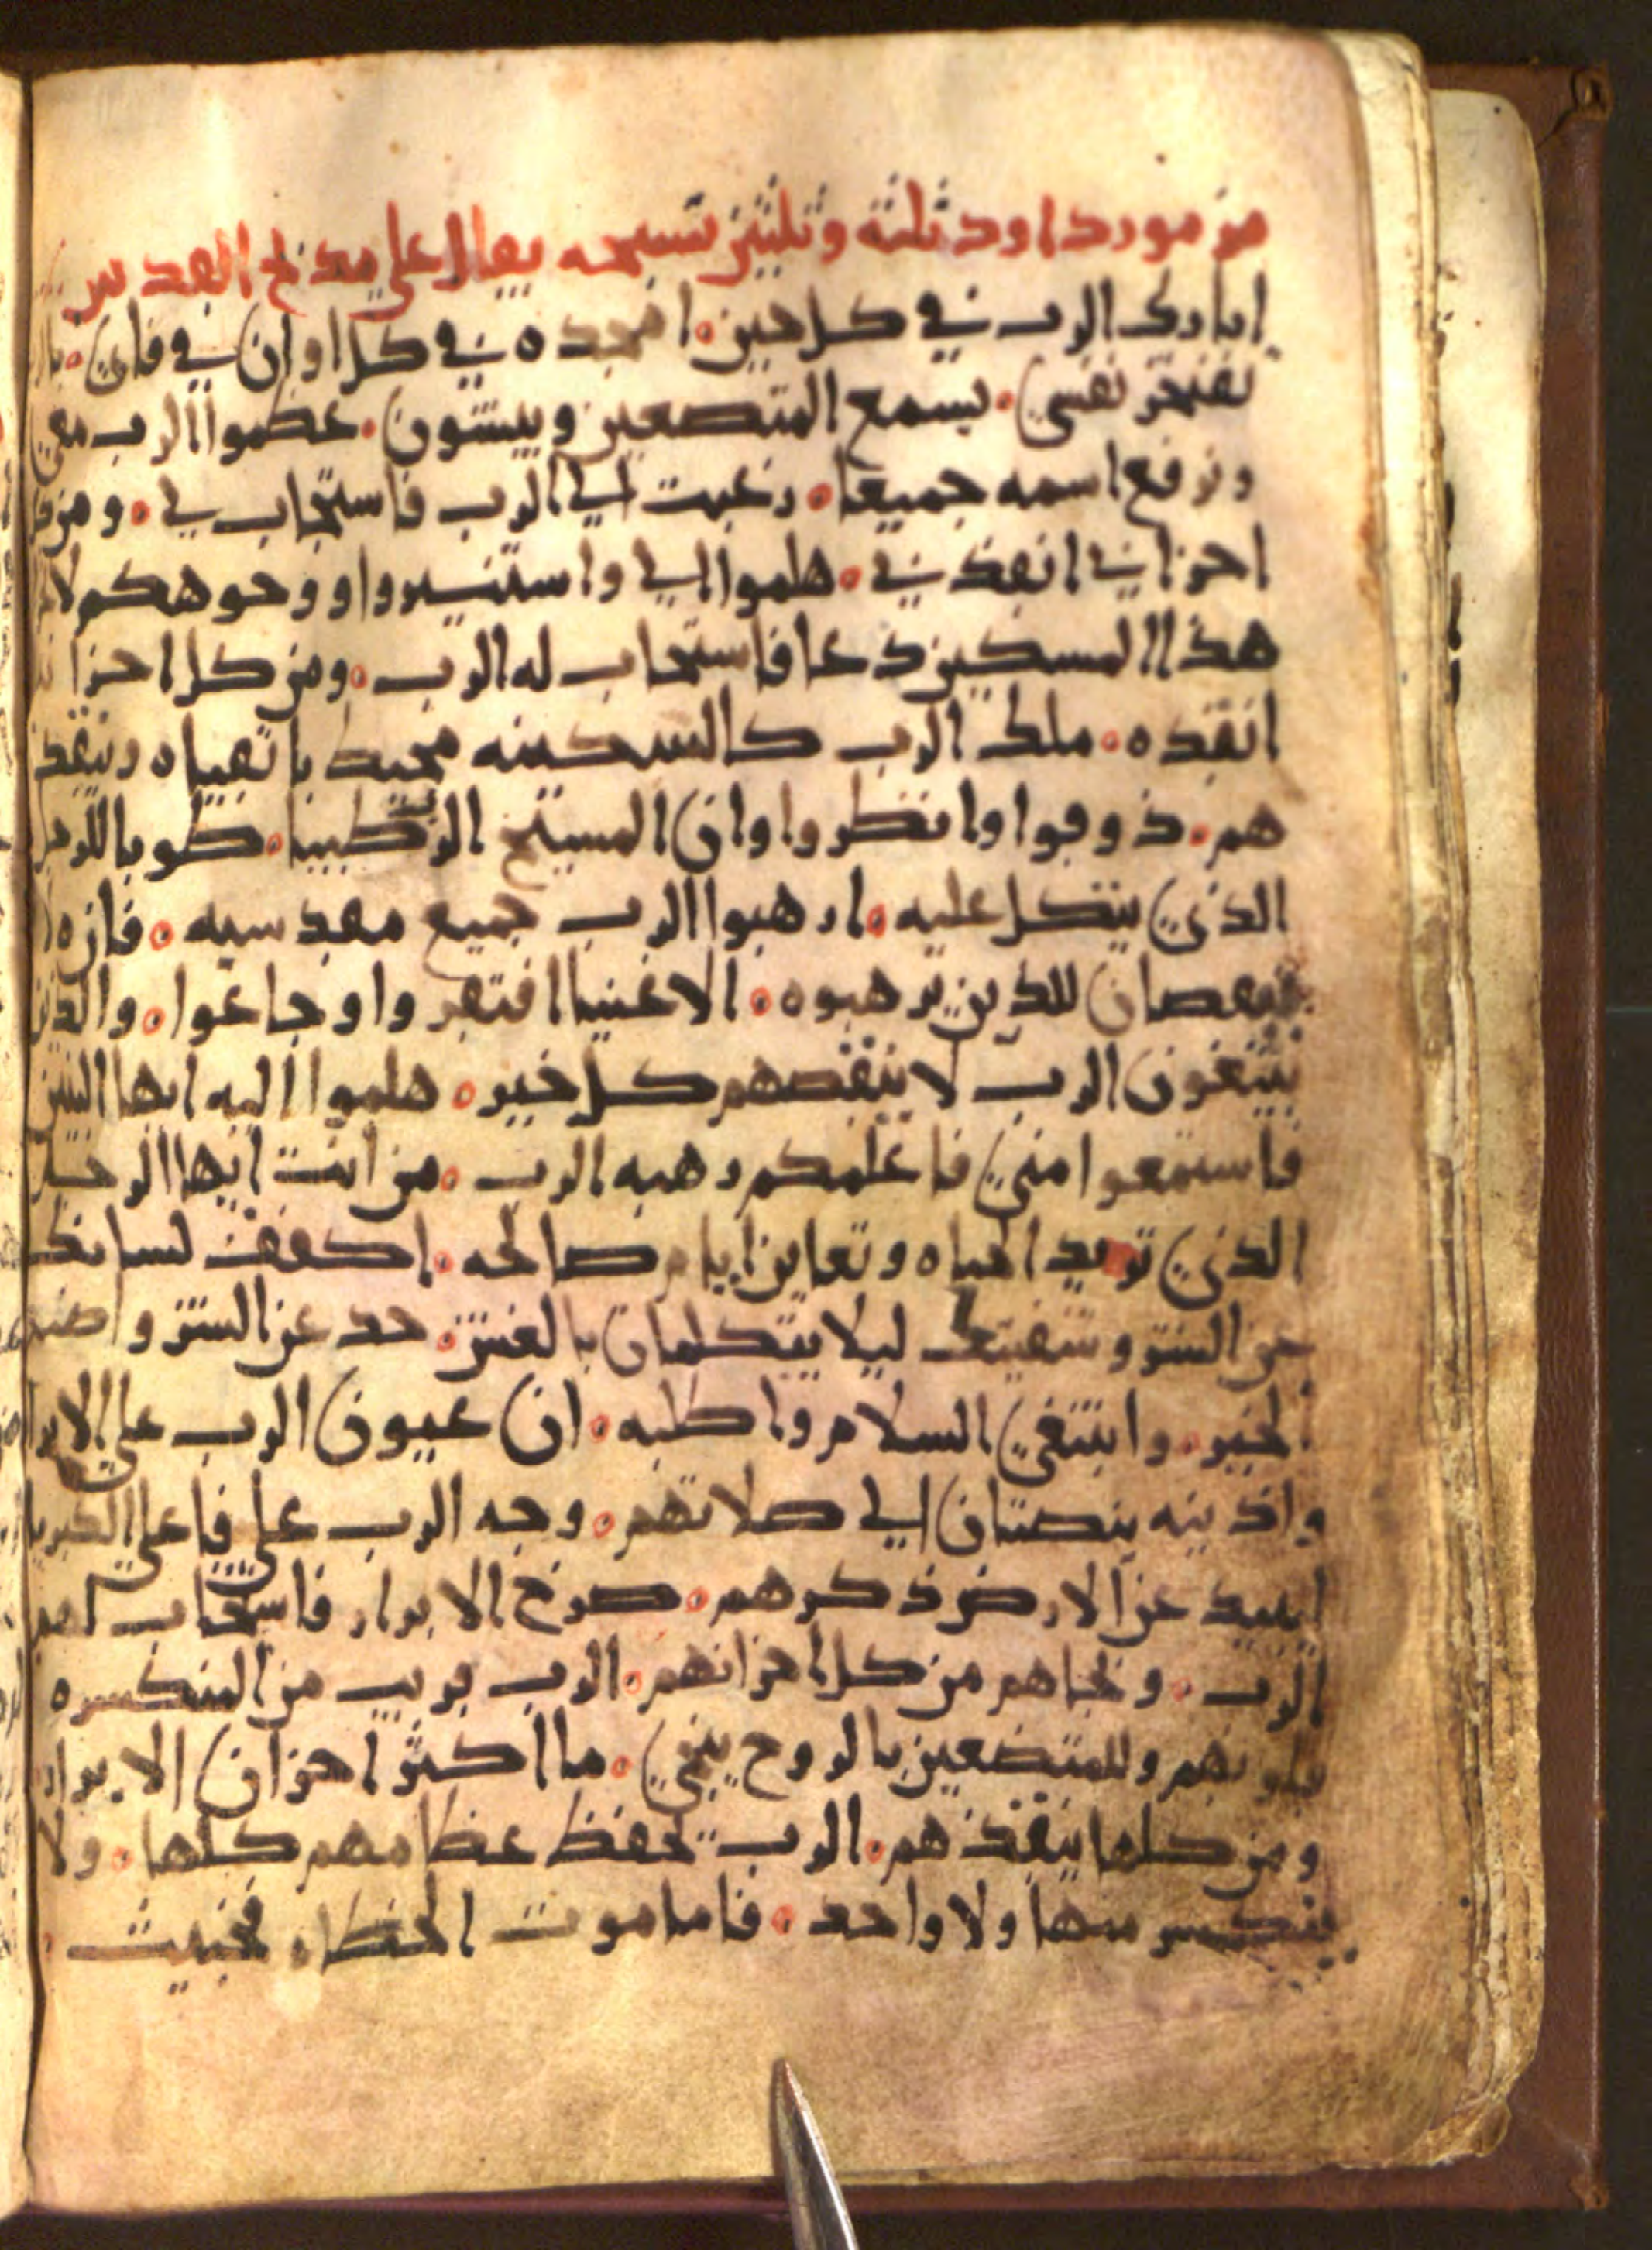 من مور داود ثلثة وثلثين تسبحه يقال على مذبح القديس
ابارك الرب في كل حين. امجده في كل اوان في فاي.
تفتخر نفسي. يسمع المتضعين ويبشون. عظموا الرب معي
ونرفع اسمه جميعا. رغبت الي الرب فاستجاب لي. ومن
احزاني انقذني. هلموا الي واستنيروا ووجوهكم لا
هذا المسكين دعا فاستجاب له الرب. ومن كل احزا
انقذه. ملك الرب كالسكينه محيط باتقياه وينقذ
هم. ذوقوا وانظروا وان المسيح الرب طيبا. طوبا للرجل
الذي يتكل عليه. ارهبوا الرب جميع مقدسيه. فانه
نقصان للذين يرهبوه. الاغنيا افتقروا وجاعوا. والذين
يبتغون الرب لا ينقصهم كل خير. هلموا اليه ايها البنين
فاستمعوا مني فاعلمكم رهبه الرب. من انت ايها الرجل
الذي تريد الحياه وتعاين ايام صالحه. اكفف لسانك
عن الشر وشفيتك ليلا يتكلمان بالغش. حد عن الشر واصنع
الخير. وابتغي السلام واطلبه. ان عيون الرب علي الابرا
واذينه ينصتان الي صلاتهم. وجه الرب علي فاعلي
ليبيد عن الارض ذكرهم. صرخ الابرار فاستجاب لهم
الرب. ونجاهم من كل احزانهم. الرب قريب من المنكسره
قلوبهم وللمتضعين بالروح ينجي. ما اكثر احزان الابرار
ومن كلها ينقذهم. الرب يحفظ عظامهم كلها. ولا
ينكسر منها ولا واحد. فاما موت الخطاه فخبيث